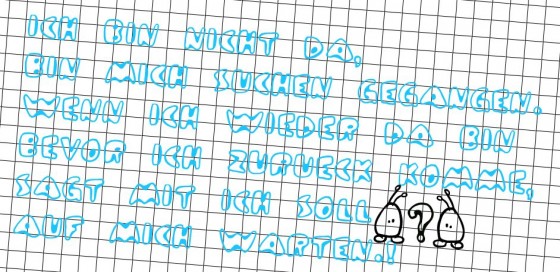 ICH BIN NICHT DA,
BIN MICH SUCHEN GEGANGEN.
WENN ICH WIEDER DA BIN
BEVOR ICH ZURUECK KOMME,
SAGT MIT ICH SOLL ?
AUF MICH WARTEN.!